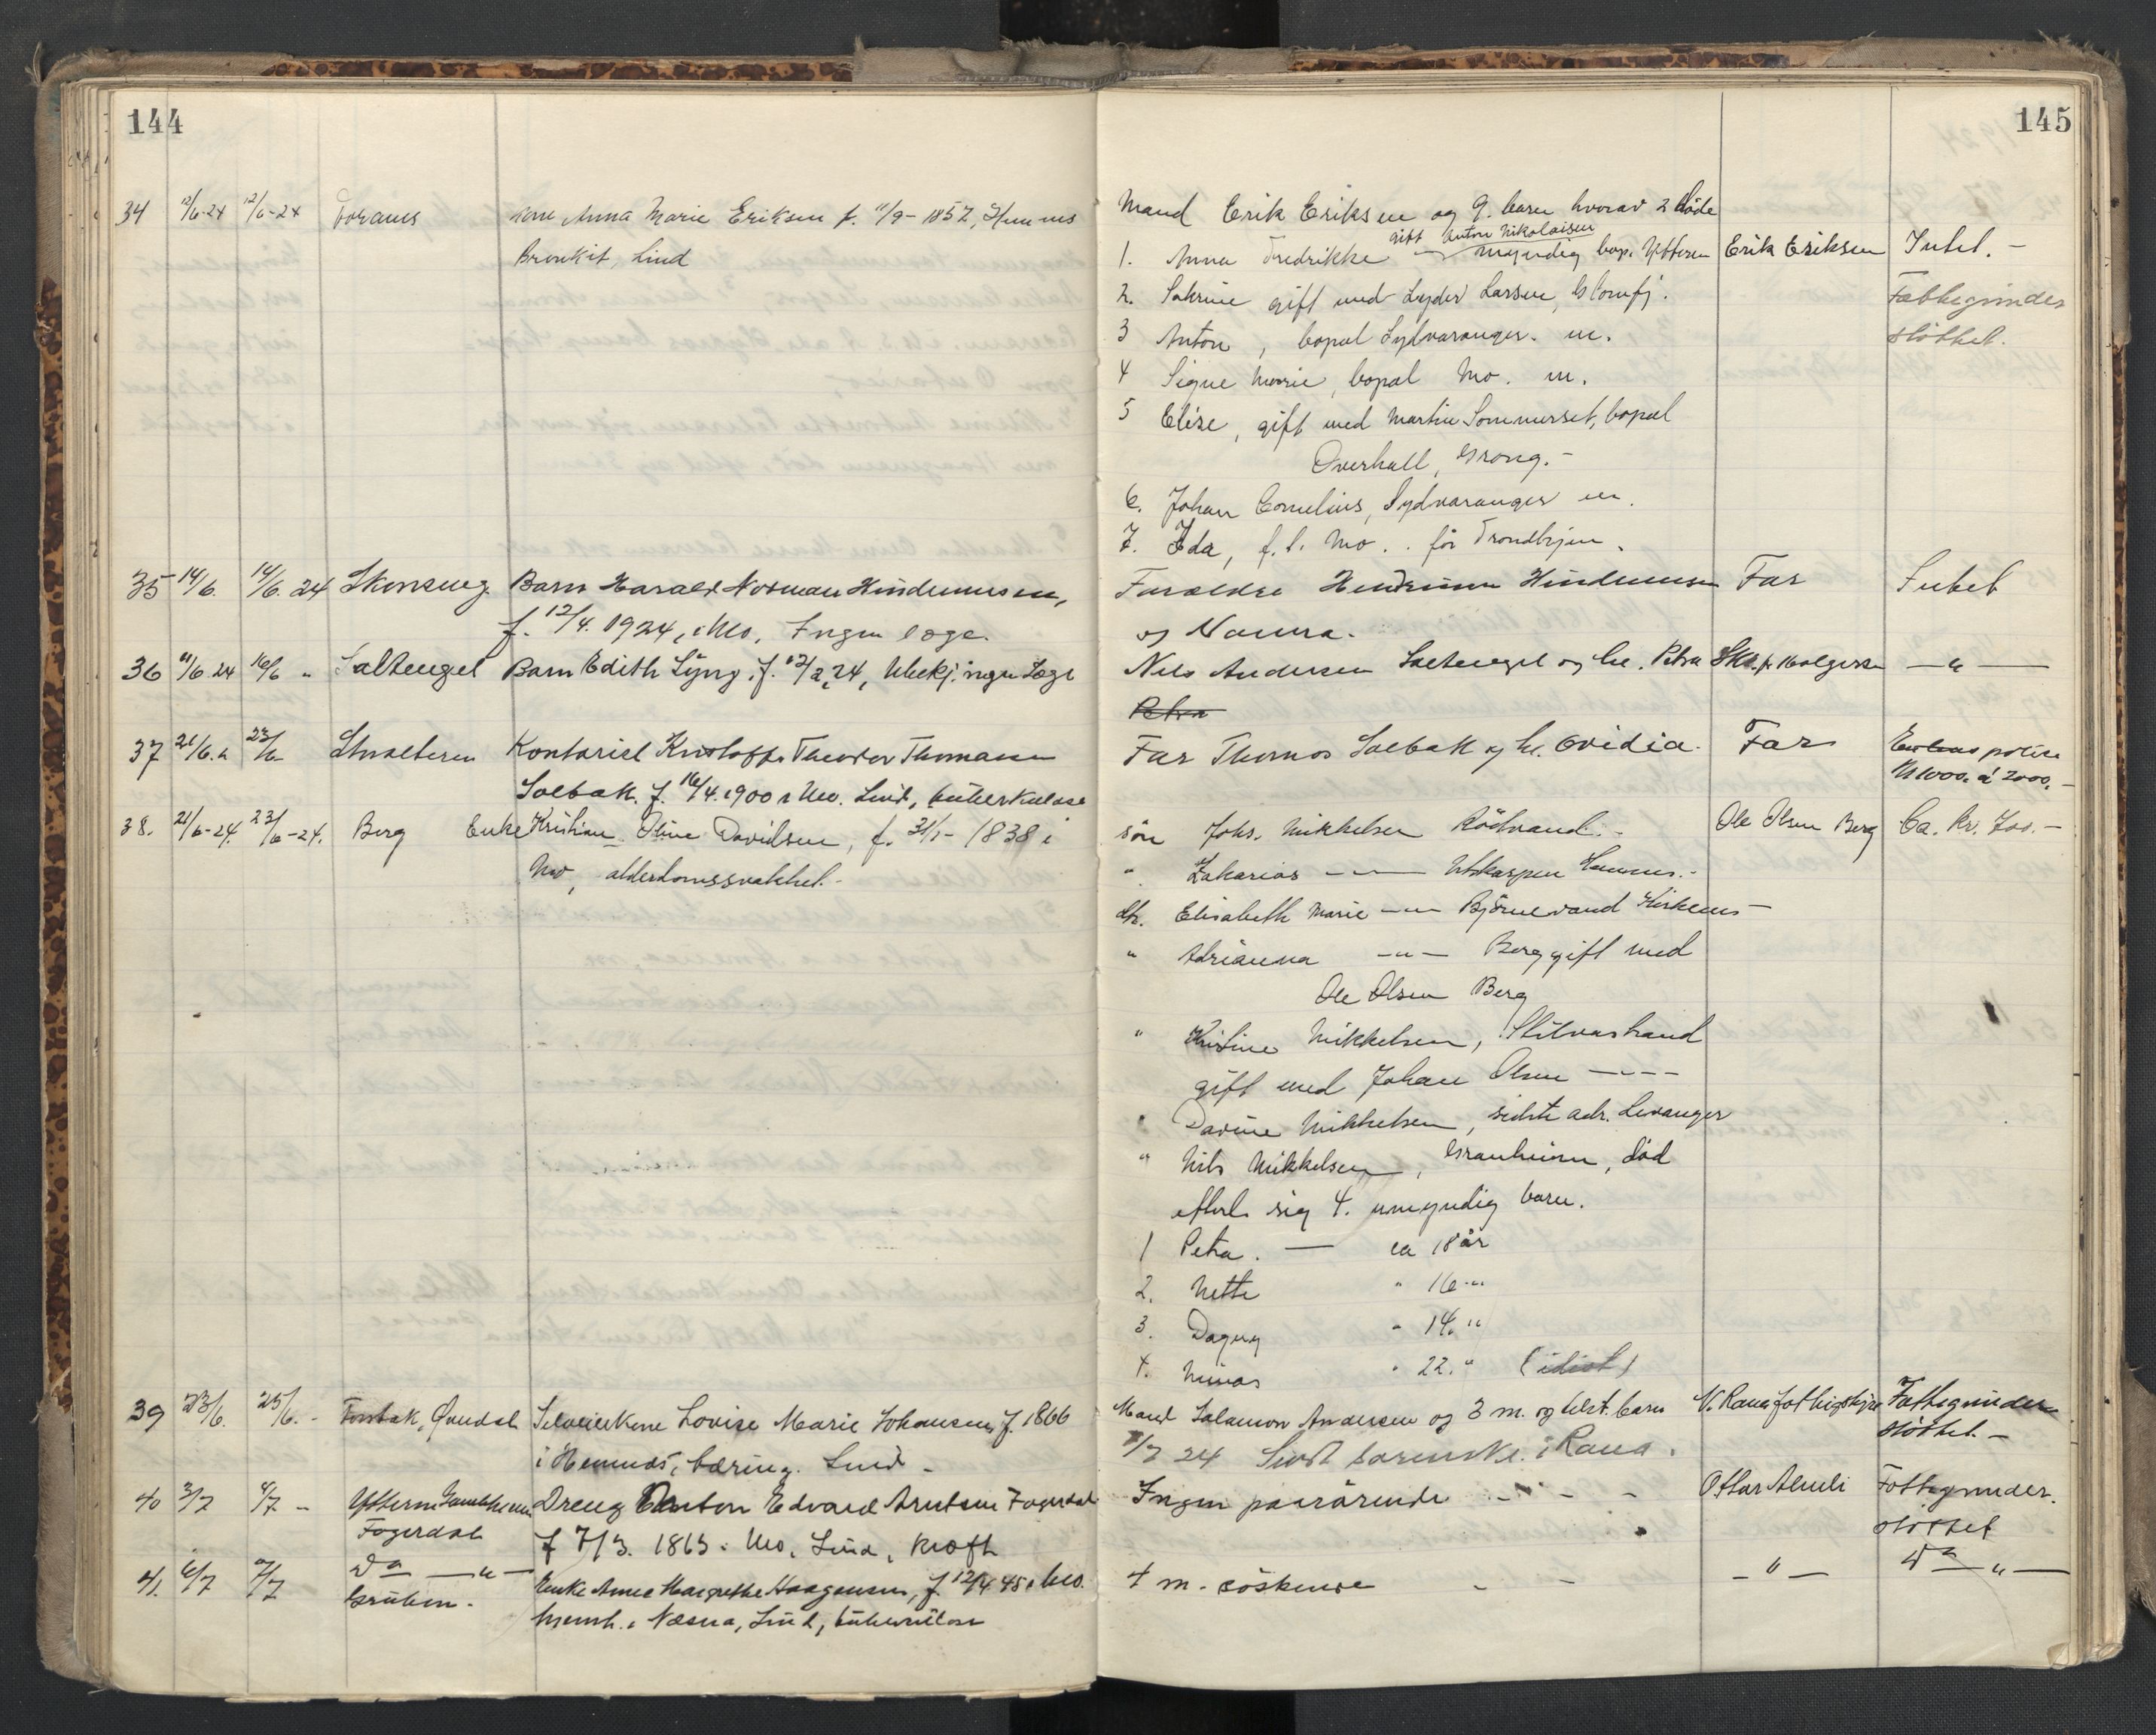 144
34 12/6-24 12/6-24 Toraues kone Anna Marie Eriksen f. 11/9-1857, Hemnes
Bronkit, Lind
35 14/6. 14/6. 24 Skonseng Barn Harald Norman Hindrumsen,
f. 12/4. 1924, i Mo, Ingen læge.
36 11/6 24 16/6 " Saltengel Barn Edith Lyng. f. 12/2 24, ingen Læge
37 21/6. 23/6 Kontorist Kristoffer Theodor Thomasen
Solbak. f. 16/4. 1900 i Mo. Lind, tuberkulose
38. 21/6-24. 23/6-24. Berg Enke Kristian Oline Davidsen, f. 31/1- 1838 i
Mo, alderdomssvakhet.-
39 23/6. 25/6.- Lovise Marie Johansen, f. 1866
i Hemnes, tæring. Lind -
40 3/7 4/7 - Ytteren Dreng Anton Edvard Arntsen Fagerdal
Fagerdal f 7/3. 1863 i Mo, Lind, kræft
41. 6/7 7/7 Da —"—
Gruben. Enke Anne Margrethe Haagensen, f 12/4 45 i Mo.
hjemh. i Næsna, Lind, tuberkulose
145
Mand Erik Eriksen og 9. barn hvorav 2 døde
gift Anton Nikolaisen
1. Anna Fredrikke — myndig bop. Ytteren Erik Eriksen Intet.-
2. gift med Lyder Larsen, Glomfj. Fattigunder
støttet.
3 Anton, bopæl Sydvaranger. m.
4 Signe Marie, bopæl Mo. m.
5 Elise, gift med Martin Sommerset, bopæl
Overhall, Grong.-
6. Johan Cornelius, Sydvaranger m.
7. Ida, f. t. Mo.. før Trondhjem.
Forældre Hindrumsen Far Intet
og Nanna.
Nils Andersen Saltengel og h. Petra —"—
Petra
Far Thomas Solbak og h. Ovidia. Far polise
Kr 1000. à 2000.-
søn Johs. Mikkelsen Rødvand.- Ole Olsen Berg Ca. Kr. 700.-
" Zakarias —"— Utskarpen Hemnes.-
dtr. Elisabeth Marie —"— Bjørnevand Kirkenes-
" Adrianna —"— Berg gift med
Ole Olsen Berg
" Kristine Mikkelsen, Stilvastrand
gift med Johan Olsen —"—
" Davine Mikkelsen, sidste adr. Levanger
" Nils Mikkelsen, Granheim, død
efterl. sig 4. umyndig barn.
1 Petra. — ca 18 år
2. Nette " 16 "
3. Dagny " 14. "
4. " 22. " (idiot)
Mand Salamon Andersen og 3 m. og 1 barn N. Rana fattigstyre Fattigunder
støttet.-
8/7 24 i Rana.
Ingen paarørende - - - Ottar Fattigunder.
støttet
4 m. søskende - - —"— Da —"—